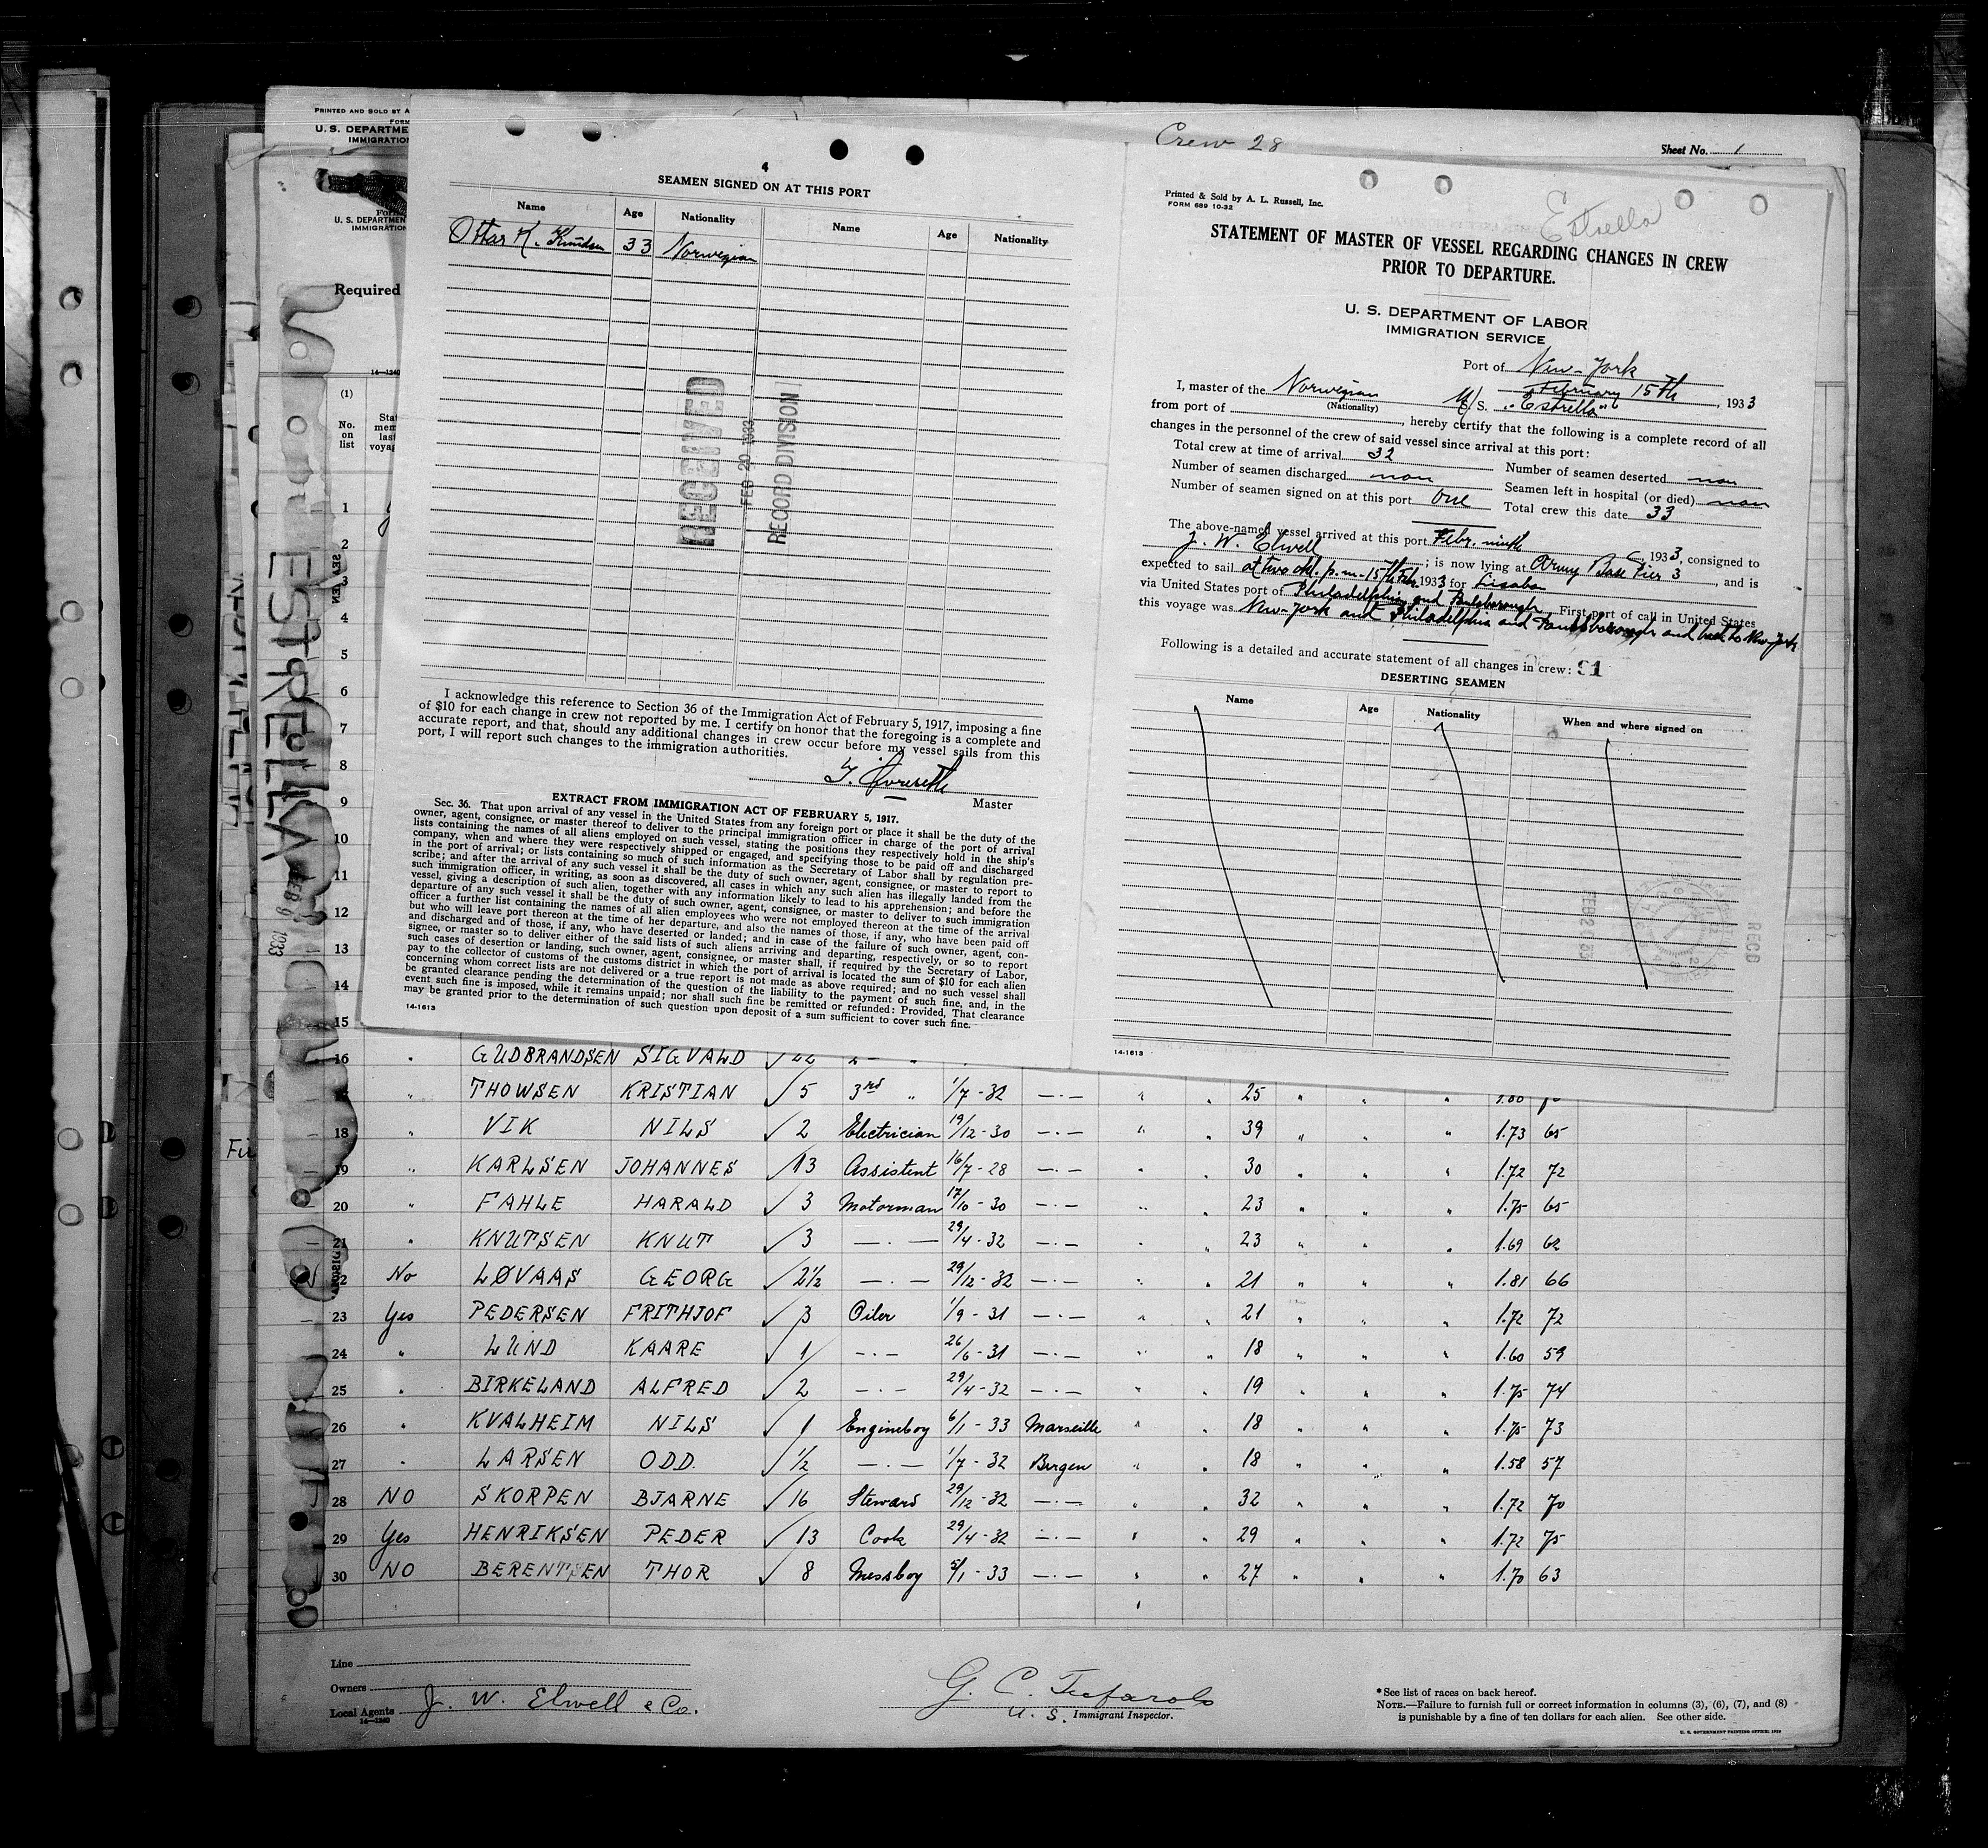 PRINTED AND SOLD BY A
FORM
U. S. DEPARTME
IMMIGRATION
Crew 28
Sheet No. 1
U. S. DEPARTMENT
IMMIGRATION
Required
14—1240
(1)
No. on list
ESTRELLA
FEB 9 1933
4
SEAMEN SIGNED ON AT THIS PORT
Name Age Nationality Name Age Nationality
Ottar K. Knudsen 33 Norwegian
RECEIVED
FEB 20 1933
RECORD DIVISION
I acknowledge this reference to Section 36 of the Immigration Act of February 5, 1917, imposing a fine
of $10 for each change in crew not reported by me. I certify on honor that the foregoing is a complete and
accurate report, and that, should any additional changes in crew occur before my vessel sails from this
port, I will report such changes to the immigration authorities.
Master
EXTRACT FROM IMMIGRATION ACT OF FEBRUARY 5, 1917.
Sec. 36. That upon arrival of any vessel in the United States from any foreign port or place it shall be the duty of the
owner, agent, consignee, or master thereof to deliver to the principal immigration officer in charge of the port of arrival
lists containing the names of all aliens employed on such vessel, stating the positions they respectively hold in the ship's
company, when and where they were respectively shipped or engaged, and specifying those to be paid off and discharged
in the port of arrival; or lists containing so much of such information as the Secretary of Labor shall by regulation pre-
scribe; and after the arrival of any such vessel it shall be the duty of such owner, agent, consignee, or master to report to
such immigration officer, in writing, as soon as discovered, all cases in which any such alien has illegally landed from the
vessel, giving a description of such alien, together with any information likely to lead to his apprehension; and before the
departure of any such vessel it shall be the duty of such owner, agent, consignee, or master to deliver to such immigration
officer a further list containing the names of all alien employees who were not employed thereon at the time of the arrival
but who will leave port thereon at the time of her departure, and also the names of those, if any, who have been paid off
and discharged and of those, if any, who have deserted or landed; and in case of the failure of such owner, agent, con-
signee, or master so to deliver either of the said lists of such aliens arriving and departing, respectively, or so to report
such cases of desertion or landing, such owner, agent, consignee, or master shall, if required by the Secretary of Labor,
pay to the collector of customs of the customs district in which the port of arrival is located the sum of $10 for each alien
concerning whom correct lists are not delivered or a true report is not made as above required; and no such vessel shall
be granted clearance pending the determination of the question of the liability to the payment of such fine, and, in the
event such fine is imposed, while it remains unpaid; nor shall such fine be remitted or refunded: Provided, That clearance
may be granted prior to the determination of such question upon deposit of a sum sufficient to cover such fine.
14-1613
Printed & Sold by A. L. Russell, Inc.
FORM 689 10-32
Estrella
STATEMENT OF MASTER OF VESSEL REGARDING CHANGES IN CREW
PRIOR TO DEPARTURE.
U. S. DEPARTMENT OF LABOR
IMMIGRATION SERVICE
Port of New-York
February 15th, 1933
I, master of the Norwegian M/S. "Estrella"
(Nationality)
from port of , hereby certify that the following is a complete record of all
changes in the personnel of the crew of said vessel since arrival at this port:
Total crew at time of arrival 32
Number of seamen discharged non Number of seamen deserted non
Number of seamen signed on at this port one Seamen left in hospital (or died) non
Total crew this date 33
The above-named vessel arrived at this port Febr. ninth, 1933, consigned to
J. W. Elwell ; is now lying at Army Base Pier 3, and is
expected to sail at two p.m. 15th Feb. 1933 for Lisabon
via United States port of Philadelphia and Paulsborough First port of call in United States
this voyage was New-York and Philadelphia and Paulsborough and back to New-York
Following is a detailed and accurate statement of all changes in crew: 91
DESERTING SEAMEN
Name Age Nationality When and where signed on
REC'D
14-1613
1
2
3
4
5
6
7
8
9
10
11
12
13
14
15
16 " GUDBRANDSEN SIGVALD √ 22 2—"
" THOWSEN KRISTIAN √ 5 3rd " 1/7-32 —.— " " 25 " " " 1.80
18 " VIK NILS √ 2 Electrician 19/12-30 —.— " " 39 " " " 1.73 65
19 " KARLSEN JOHANNES √ 13 Assistent 16/7-28 —.— " " 30 " " " 1.72 72
20 " FAHLE HARALD √ 3 Motorman 17/10-30 —.— " " 23 " " " 1.75 65
21 " KNUTSEN KNUT √ 3 —.— 29/4-32 —.— " " 23 " " " 1.69 62
22 No LØVAAS GEORG √ 2½ —.— 29/12-32 —.— " " 21 " " " 1.81 66
23 Yes PEDERSEN FRITHJOF √ 3 Oiler 1/9-31 —.— " " 21 " " " 1.72 72
24 " LUND KAARE √ 1 —.— 26/6-31 —.— " " 18 " " " 1.60 59
25 " BIRKELAND ALFRED √ 2 —.— 29/4-32 —.— " " 19 " " " 1.75 74
26 " KVALHEIM NILS √ 1 Engineboy 6/1-33 Marseille " " 18 " " " 1.75 73
27 " LARSEN ODD. √ ½ —.— 1/7-32 Bergen " " 18 " " " 1.58 57
28 NO SKORPEN BJARNE √ 16 Steward 29/12-32 —.— " " 32 " " " 1.72 70
29 Yes HENRIKSEN PEDER √ 13 Cook 29/4-32 —.— " " 29 " " " 1.72 75
30 NO BERENTSEN THOR √ 8 Messboy 5/1-33 —.— " " 27 " " " 1.70 63
Line
Owners
Local Agents J. W. Elwell & Co.
14—1240
U. S. Immigrant Inspector.
* See list of races on back hereof.
NOTE.—Failure to furnish full or correct information in columns (3), (6), (7), and (8)
is punishable by a fine of ten dollars for each alien. See other side.
U. S. GOVERNMENT PRINTING OFFICE: 1929